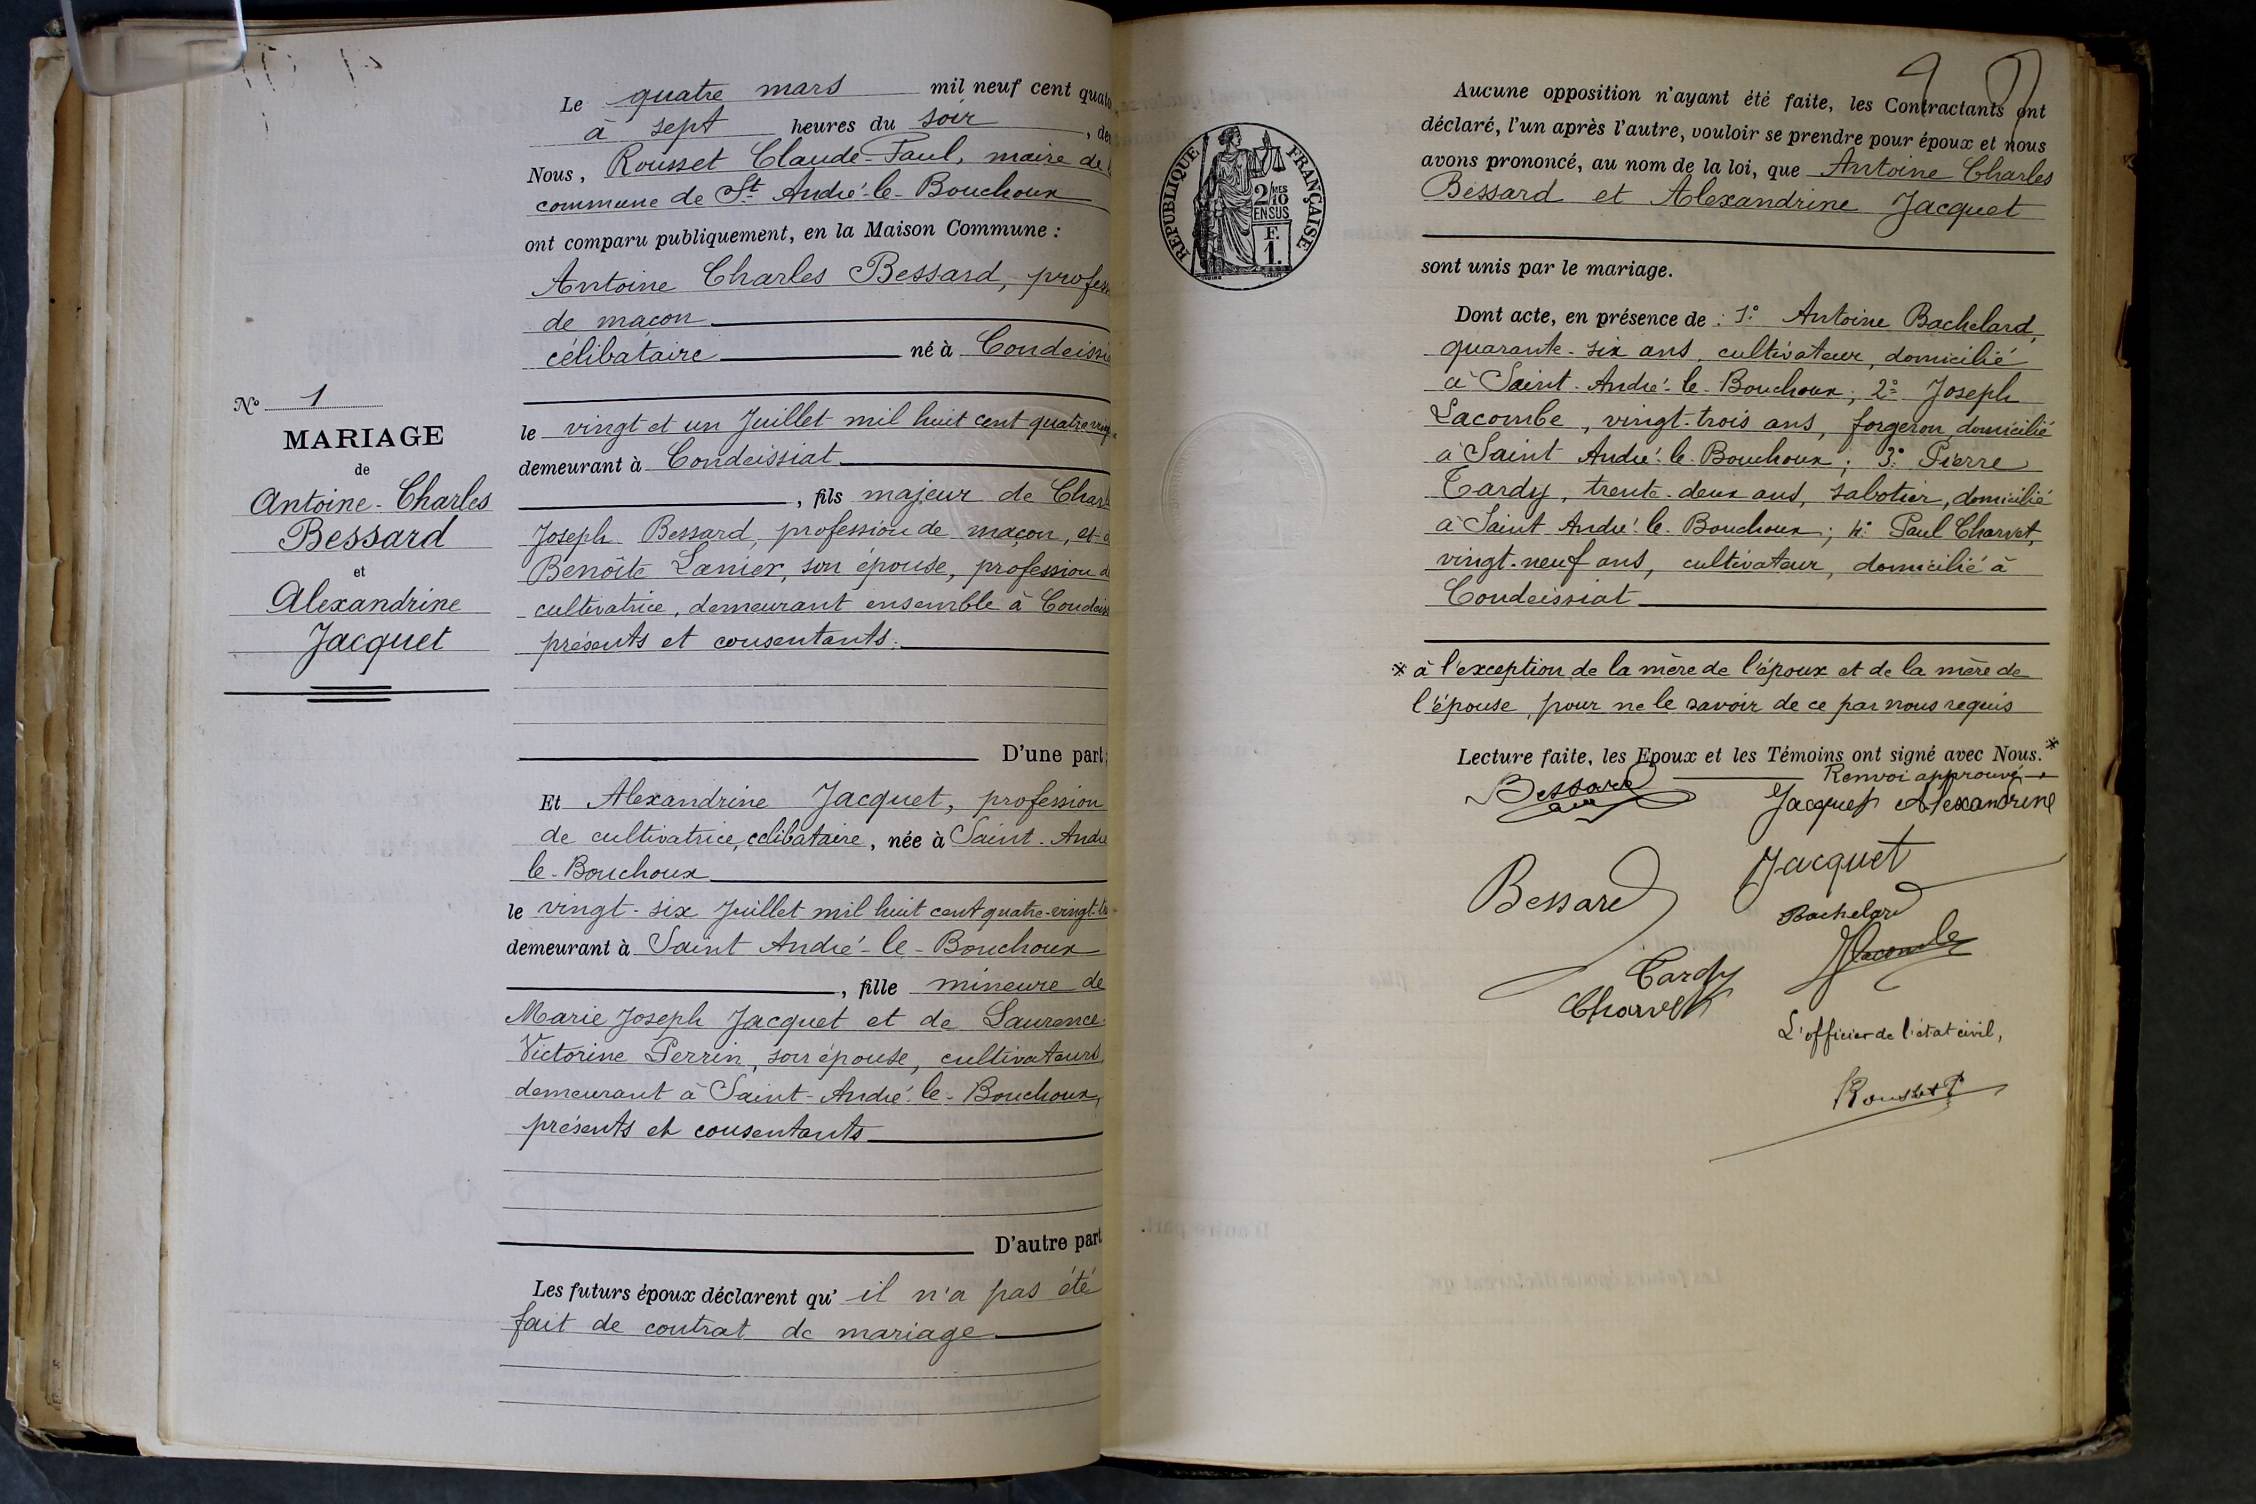 Le quatre mars mil neuf cent quato
à sept heures du soir, dev
Nous, Rousset Claude-Paul, maire de
commune de St André-le-Bouchoux
ont comparu publiquement, en la Maison Commune :
Antoine Charles Bessard, profess
de maçon
célibataire né à Condeissia
No 1
le vingt et un Juillet mil huit cent quatre vingt
MARIAGE
demeurant à Condeissiat
de
Antoine-Charles
, fils majeur de Charl
Bessard
Joseph Bessard, profession de maçon, et d
et
Benoîte Lanier, son épouse, profession d
Alexandrine
cultivatrice, demeurant ensemble à Condeiss
Jacquet
présents et consentants.
D'une part;
Et Alexandrine Jacquet, profession
de cultivatrice, célibataire, née à Saint-André
le-Bouchoux
le vingt-six Juillet mil huit cent quatre-vingt-
demeurant à Saint André-le-Bouchoux
, fille mineure de
Marie Joseph Jacquet et de Laurence
Victorine Perrin, son épouse, cultivateurs
demeurant à Saint-André-le-Bouchoux,
présents et consentants
D'autre part
Les futurs époux déclarent qu' il n'a pas été
fait de contrat de mariage
RÉPUBLIQUE FRANÇAISE
2/10MES
EN SUS
F.
1.
Aucune opposition n'ayant été faite, les Contractants ont
déclaré, l'un après l'autre, vouloir se prendre pour époux et nous
avons prononcé, au nom de la loi, que Antoine Charles
Bessard et Alexandrine Jacquet
sont unis par le mariage.
Dont acte, en présence de : 1° Antoine Bachelard,
quarante-six ans, cultivateur, domicilié
à Saint-André-le-Bouchoux; 2° Joseph
Lacombe, vingt-trois ans, forgeron, domicilié
à Saint André-le-Bouchoux; 3° Pierre
Tardy, trente-deux ans, sabotier, domicilié
à Saint André-le-Bouchoux; 4° Paul Charvet,
vingt-neuf ans, cultivateur, domicilié à
Condeissiat
* à l'exception de la mère de l'époux et de la mère de
l'épouse, pour ne le savoir de ce par nous requis
Lecture faite, les Epoux et les Témoins ont signé avec Nous. *
Renvoi approuvé
Bessard
Jacquet Alexandrine
Jacquet
Bessard
Bachelard
JLacombe
Tardy
Charvet
L'officier de l'état civil,
Rousset P